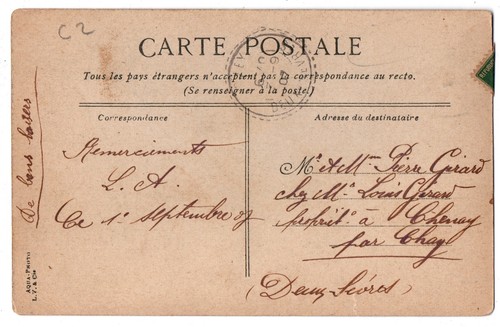 C2
CARTE POSTALE
Tous les pays étrangers n'acceptent pas la correspondance au recto.
(Se renseigner à la poste)
Correspondance
Adresse du destinataire
De bons baisers
Remerciements
L. A.
Ce 1er Septembre 07
Mr et Mme Pierre Girard
chez Mr Louis Girard
proprit. à Chenay
par Chey
(Deux-Sèvres)
AQUA-PHOTO
L. V. & Cie